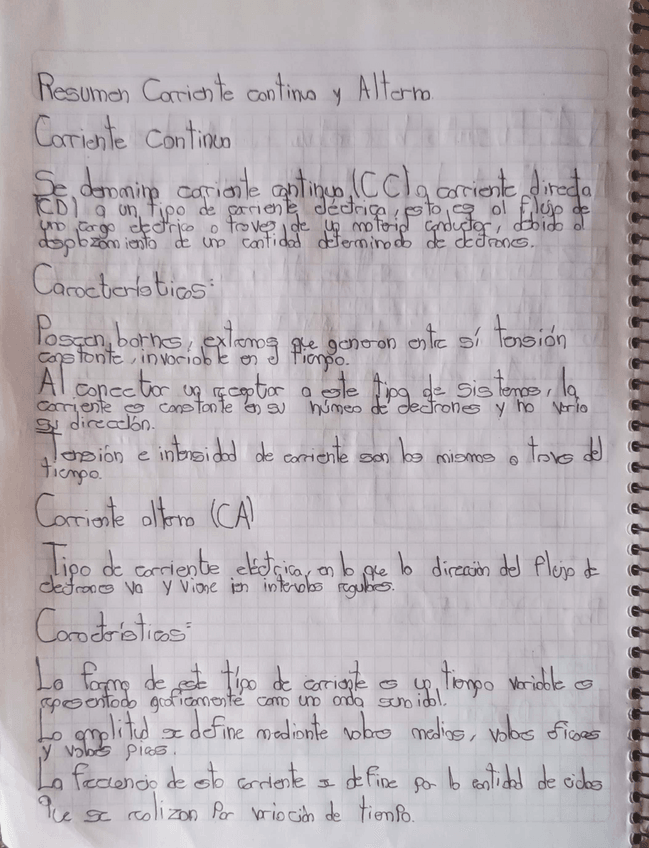 Resumen Corriente continua y Alterna
Corriente Continua
Se denomina corriente continua (CC) a corriente directa
(CD) a un tipo de corriente eléctrica, esto es al flujo de
una carga electrica a traves de un material conductor, debido al
desplazamiento de una cantidad determinada de electrones.
Características:
Poseen bornes, extremos que generan entre sí tensión
constante, invariable en el tiempo.
Al conectar un receptor a este tipo de sistemas, la
corriente es constante en su número de electrones y no varia
su dirección.
Tensión e intensidad de corriente son las mismas a traves del
tiempo.
Corriente alterna (CA)
Tipo de corriente eléctrica, en la que la dirección del flujo de
electrones va y viene en intervalos regulares.
Características:
La forma de este tipo de corriente es un tiempo variable es
representada graficamente como una onda
La amplitud se define mediante valores medios, valores eficaces
y valores picos.
La frecuencia de esta corriente se define por la cantidad de ciclos
que se realizan por variación de tiempo.